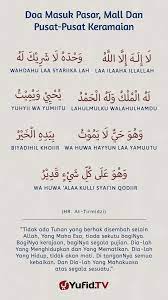 Doa Masuk Pasar, Mall Dan
Pusat-Pusat Keramaian
لَا إِلَهَ إِلَّا اللَّهُ وَحْدَهُ لَا شَرِيكَ لَهُ
WAHDAHU LAA SYARIIKA LAH LAA ILAAHA ILLALLAH
لَهُ الْمُلْكُ وَلَهُ الْحَمْدُ يُحْيِي وَيُمِيتُ
YUHYII WA YUMIITU LAHULMULKU WALAHULHAMDU
وَهُوَ حَيٌّ لَا يَمُوتُ بِيَدِهِ الْخَيْرُ
BIYADIHIL KHOIR WA HUWA HAYYUN LAA YAMUUTU
وَهُوَ عَلَى كُلِّ شَيْءٍ قَدِيرٌ
WA HUWA 'ALAA KULLI SYAI'IN QODIIR
(HR. At-Tirmidzi)
"Tidak ada Tuhan yang berhak disembah selain
Allah, Yang Maha Esa, tiada sekutu bagiNya.
BagiNya kerajaan, bagiNya segala pujian. Dia-lah
Yang Menghidupkan dan Yang Mematikan. Dia-lah
Yang Hidup, tidak akan mati. Di tanganNya semua
kebaikan. Dan Dia-lah Yang Mahakuasa
atas segala sesuatu."
YUFID.TV